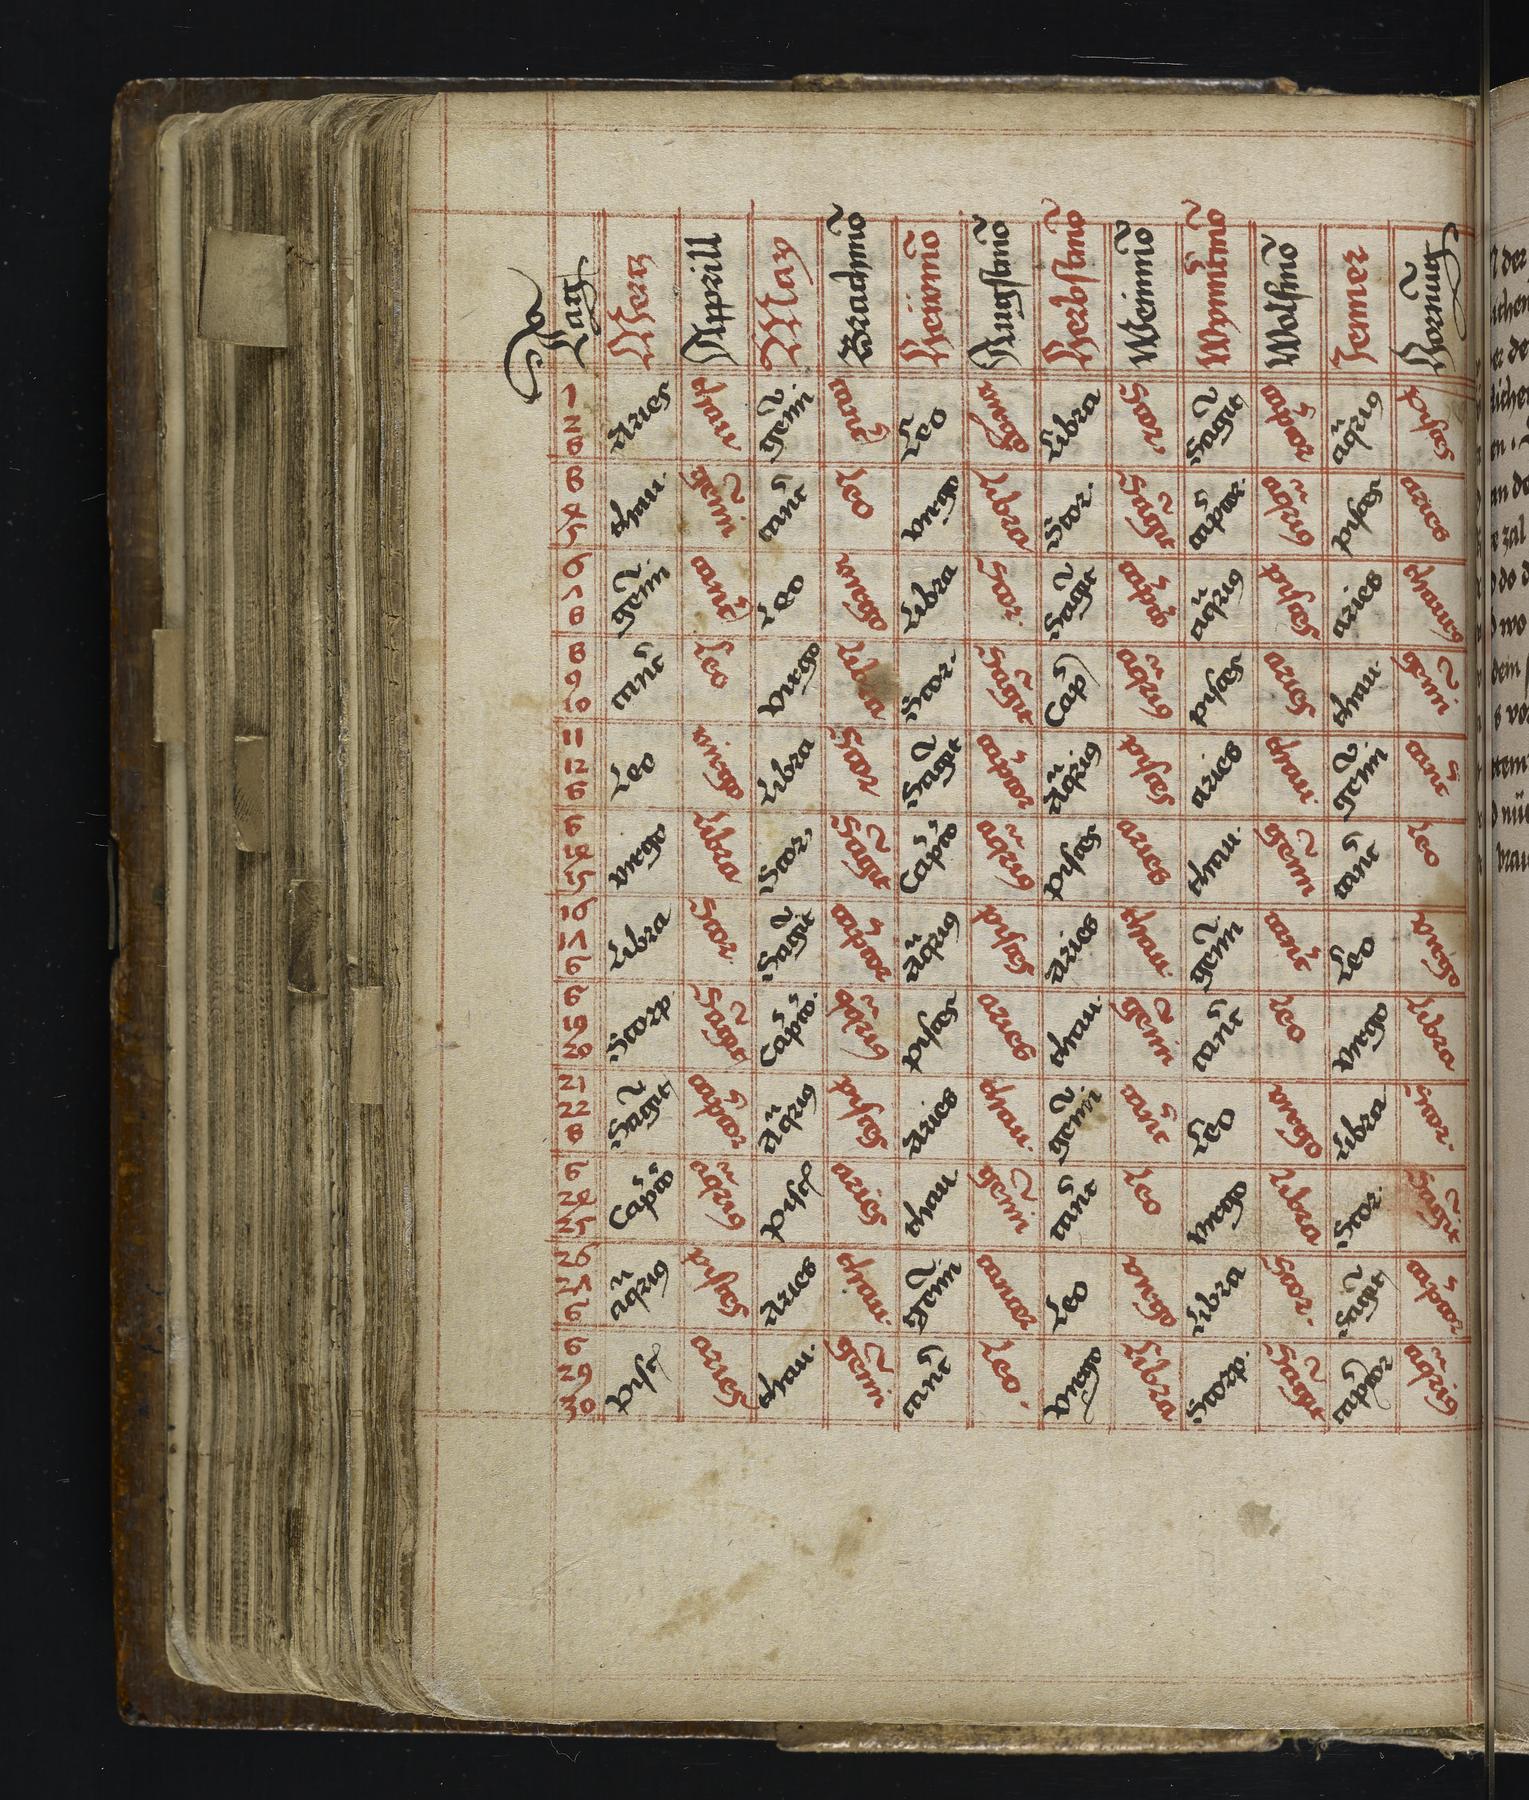 Tag Mertz Apprill May Brachmō Heüwmō Augstmō Herbstmō Weinmō Wynntmō Wolfmō Jenner Hornūg
1 2 3 Aries thau gem̄i cancr Leo virgo Libra scor Sagit̄ capco aq̄rig pisces
3 4 5 thau. gemi canc leo virgo libra Scor. sagit capcor. aqrig pisces aries
6 7 8 gem̄i cancr Leo virgo Libra scor Sagit̄ capco aq̄rig pisces aries thaur
8 9 10 canc leo virgo libra Scor. sagit Cap aqrig pisces aries thau. gemi
11 12 13 Leo virgo Libra scor Sagit̄ capco Aq̄rig pisces aries thaur gem̄i canc
13 14 15 virgo libra Scor, sagit Capco aqrig pisces aries thau. gemi canc leo
16 17 18 Libra scor Sagit̄ capco Aq̄rig pisces Aries thaur gem̄i cancr Leo virgo
18 19 20 Scorp. sagit Capco. aqrig pisces aries thau. gemi canc leo virgo libra
21 22 23 Sagit̄ capco Aq̄rig pisces Aries thaur gem̄i canc Leo virgo Libra scor.
23 24 25 Capco aqrig pisc aries thau. gemi canc leo virgo libra Scor. sagit
26 27 28 aq̄rig pisces Aries thaur gem̄i cancer Leo virgo Libra scor Sagit̄ capco
28 29 30 pisc aries thau. gemi canc Leo. virgo libra Scorp. sagit capcor aqrig